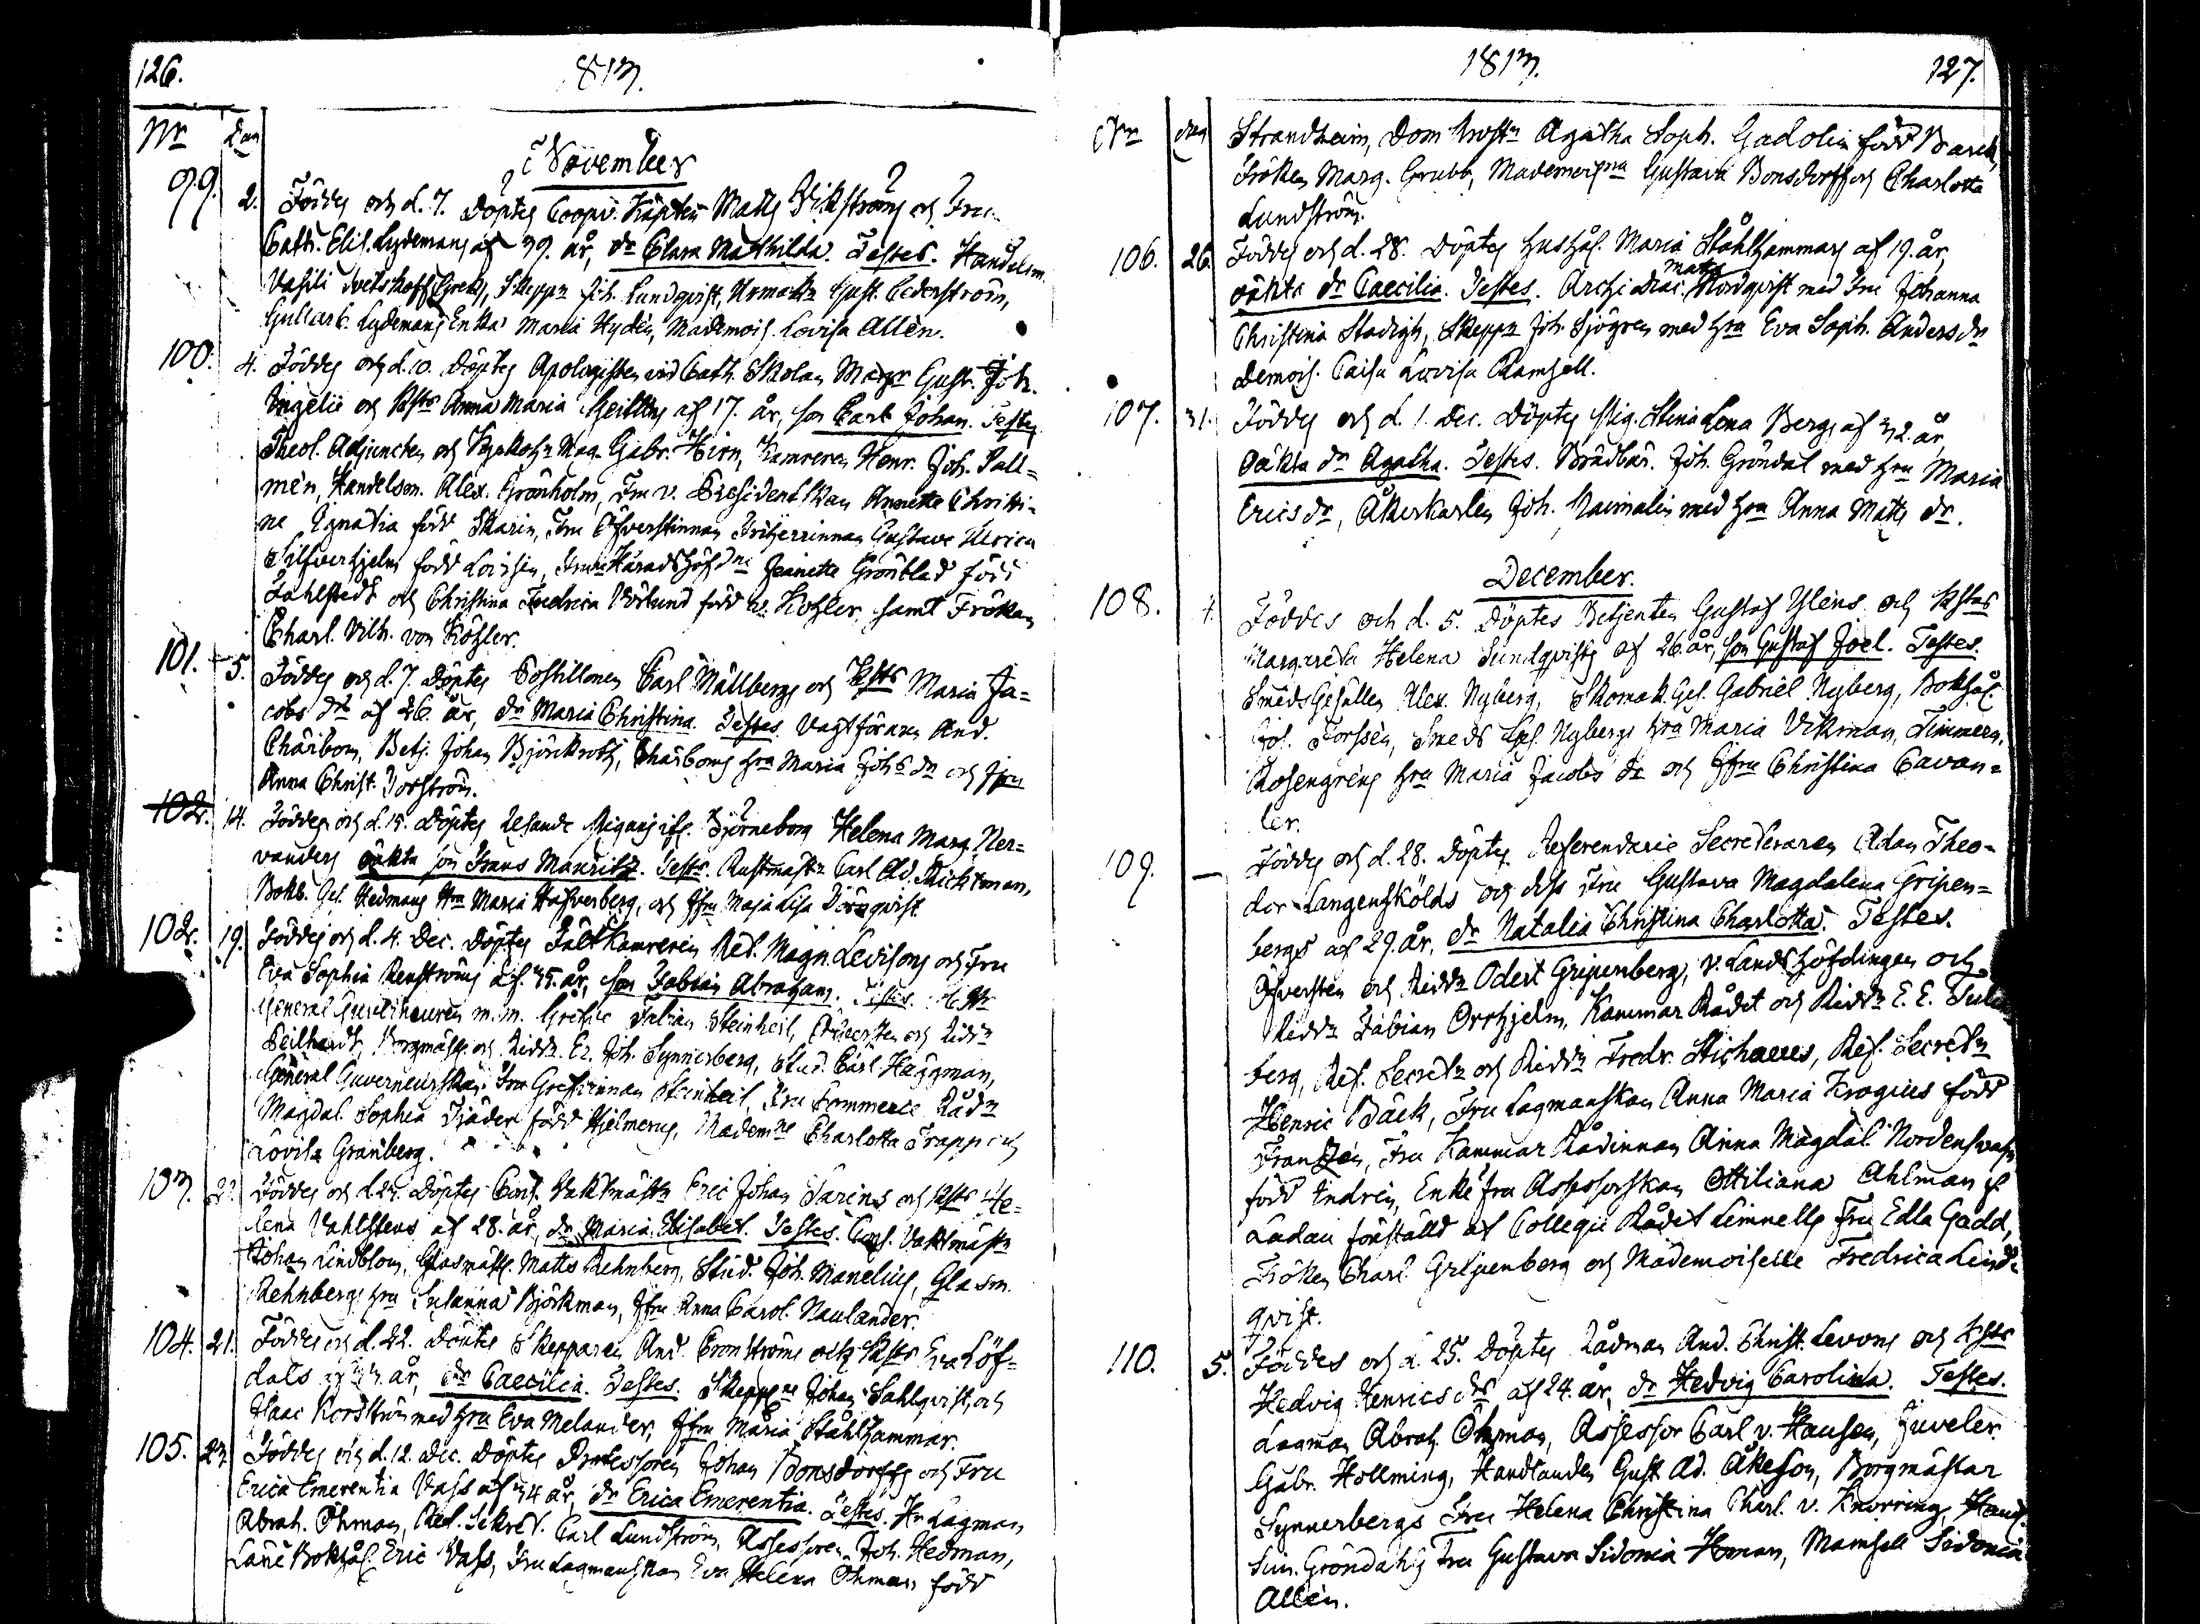 126.
1813.
Nr Dan
November
99. 2. Föddes och d. 7. döptes Coopv. Kapten Matts Wikströms och Fru
Cath. Elis. Lydemans af 39. år, dr Clara Mathilda. Testes. Handelsm.
Vasili Svetskoff Grek, Skeppr Joh. Lundqvist, Urmakr Gust. Cederström,
Gullarb. Lydemans Enka Maria Hydén, Mademois. Lovisa Allén.
100. 4. Föddes och d. 10. Döptes Apologisten vid Cath. Skolan Magr Gust. Joh.
Ingelii och Hstr Anna Maria af 17. år, son Carl Johan. Testes
Theol. Adjuncten och Kyrkohr Mag. Gabr. Hirn, Kamreren Henr. Joh. Pall=
mén, Handelsm. Alex. Grönholm, Fru v. Presidentskan Annette Christi=
na Egnatia född Skarin, Fru Öfverstinnan Friherrinnan Gustava Ulrica
Silfverhjelm född, Fru Häradshöfdne Jeanette Grönblad född
Fahlstedt och Christina Fredrica född v. Kohler, samt Fröken
Charl. Vilh. von Kohler.
101. 5. Föddes och d. 7. Döptes Postillonen Carl Mällbergs och Hstr Maria Ja=
cobs dr af 26. år, dr Maria Christina. Testes. Vagtföraren And.
Chärbom, Betj. Johan, Chärboms Hru Maria Johs dr och Jfru
Anna Christ. Forström.
102. 14. Föddes och d. 15. Döptes Resande Pigans ifr. Björneborg Helena Marg. Ner=
vanders oäkta son Frans Mauritz. Testes. Rustmästr Carl Ad. Rickman,
Bokb. Ges. Hedmans Hru Maria, och Jfru Maja Lisa Törnqvist
102. 19. Föddes och d. 4. Dec. Döptes Fältkamreren Ref. Magn. Levisons och Fru
Eva Sophia Renströms af 35. år, son Fabian Abraham. Testes. Hr
General Guverneuren m.m. Grefve Fabian Steinheil, Öfversten och Riddr
Peilhardt, Borgmäst. och Riddr Er. Joh. Synnerberg, Stud. Carl Häggman,
General Guverneurskan Fru Grefvinnan Steinheil, Fru Commerce Rådn
Magdal. Sophia Tjäder född Hjelmerus, Mademne Charlotta Trapp och
Lovisa Granberg.
103. Föddes och d. 24. Döptes Cons. Vaktmästr Eric Johan Sarins och Hstr He=
lena Vahlstens af 28. år, dr Maria Elisabet. Testes. Cons. Vaktmästr
Johan Lindblom, Glasmäst. Matts Rehnberg, Stud. Joh. Manelius, Glasm.
Rehnbergs Hru Susanna Björkman, Jfru Anna Carol. Naulander.
104. 21. Föddes och d. 22. Döptes Skepparen And. Cronströms och Hstr Eva Löf=
dals år, dr Caecilia. Testes. Skeppne Johan Sahlqvist, och
Isaac Nordström med Hru Eva Melander, Jfru Maria Stålhammar.
105. 23. Föddes och d. 12. Dec. Döptes Professoren Johan Bonsdorffs och Fru
Erica Emerentia Vass af 34 år, dr Erica Emerentia. Testes. Hr Lagman
Abrah. Öhman, Ref. Sekret. Carl Lundström, Assessoren Joh. Hedman,
Bokhål. Eric Vass, Fru Lagmanskan Eva Helena Öhman född
1813. 127.
Nr dan
Strandheim, Dom Prostn Agatha Soph. Gadolin född Barck,
Fröken Marg. Grubb, Mademoisna Gustava Bonsdorff och Charlotta
Lundström.
106. 26. Föddes och d. 28. Döptes Hushål. Maria Stålhammars af 19. år,
oäkta dr Caecilia. Testes. Archi Diac. Mats Nordqvist med Fru Johanna
Christina Stadigh, Skeppr Joh. Sjögren med Hru Eva Soph. Anders dr
Demois. Caisa Lovisa Ramsell.
107. 31. Föddes och d. 1. Dec. Döptes Pig. Stina Lena Bergs af 32. år,
Oäkta dr Agatha. Testes. Brädbär. Joh. Gröndal med Hru Maria
Erics dr, Åkerkarlen Joh. Raimalin med Hru Anna Matts dr.
December.
108. 4. Föddes och d. 5. Döptes Betjenten Gustaf Yléns och Hstrs
Margareta Helena Sundqvists af 26. år, son Gustaf Joel. Testes.
Smeds Gesällen Alex. Nyberg, Skomak. Ges. Gabriel Nyberg, Bokhål.
Joh. Forssén, Smeds Ges. Nybergs Hru Maria Vikman, Timmerm.
Rosengréns Hru Maria Jacobs dr och Jfru Christina Cavan=
ler.
109. — Föddes och d. 28. Döptes Referendarie Secreteraren Adam Theo=
dor Langenskölds och dess Fru Gustava Magdalena Gripen=
bergs af 29. år, dr Natalia Christina Charlotta. Testes.
Öfversten och Riddr Odert Gripenberg, v. Landshöfdingen och
Riddr Fabian Orrhjelm, Kammar Rådet och Riddr E. E. Tulin
berg, Ref. Secretr och Riddr Fredr. Stichaeus, Ref. Secretr
Henric Bäck, Fru Lagmanskan Anna Maria Krogius född
Franzén, Fru Kammar Rådinnan Anna Magdal. Nordensvan
född Indrén, Enke fru Assessorskan Ottiliana Ahlman f.
Ladau föreställd af Collegii Rådet Limnells Fru Edla Gadd,
Fröken Charl. Gripenberg och Mademoiselle Fredrica Lind=
qvist.
110. 5. Föddes och d. 25. Döptes Rådman And. Christ. Levons och Hstrs
Hedvig Henrics drs af 24. år, dr Hedvig Carolina. Testes.
Lagman Abrah. Öhman, Assessor Carl v. Hausen, Juveler.
Gabr. Hollming, Handlanden Gust. Ad. Åkeson, Borgmästar
Synnerbergs Fru Helena Christina Charl. v. Knorring, Hand.
Sim. Gröndahls Fru Gustava Sidonia Homan, Mamsell Sidonia
Allén.